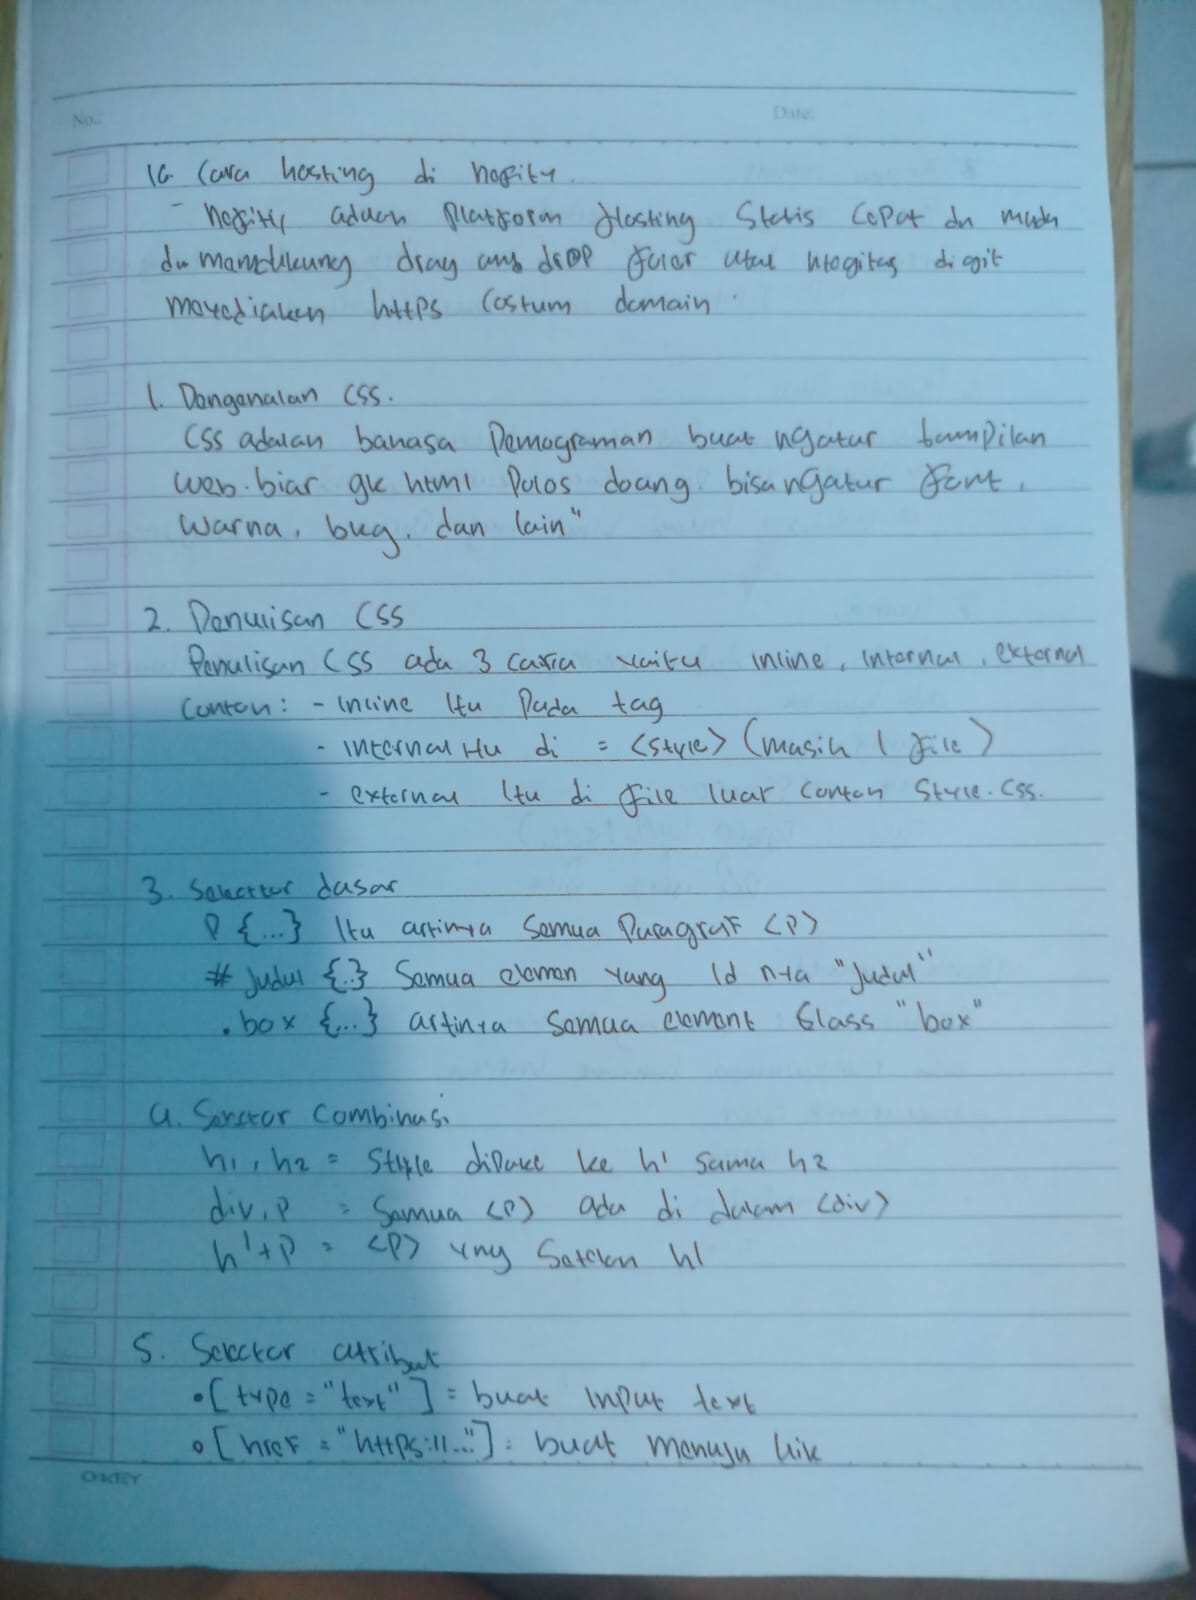 No.:
Date:
16. Cara hosting di nefity
- nefity adaah Platform Hosting Statis Cepat dn muda
dn mandukung drag ang drop folder atau di git
moyediaken https Costum domain.
1. Pengenalan CSS.
CSS adalah bahasa Pemograman buat ngatur tampilan
web. biar gk html Polos doang. bisa ngatur font,
Warna, bug, dan lain"
2. Penulisan CSS
Penulisan CSS ada 3 cara yaitu inline, internal, external
Contoh: - inline Itu Pada tag
- internal Itu di = <style> (masih 1 file)
- external Itu di file luar contoh Style.css.
3. Selector dasar
P {...} Itu artinya Semua Paragraf <P>
# Judul {..} Semua elemen yang Id nya "Judul"
.box {...} artinya Semua element Class "box"
4. Selector Combinasi
h1, h2 = Style dipake ke h1 sama h2
div, P = Semua <P> ada di dalam <div>
h1+P = <P> yng Setelah h1
5. Selector atribut
•[type = "text"] = buat Input text
•[href = "https://..."] = buat menuju link